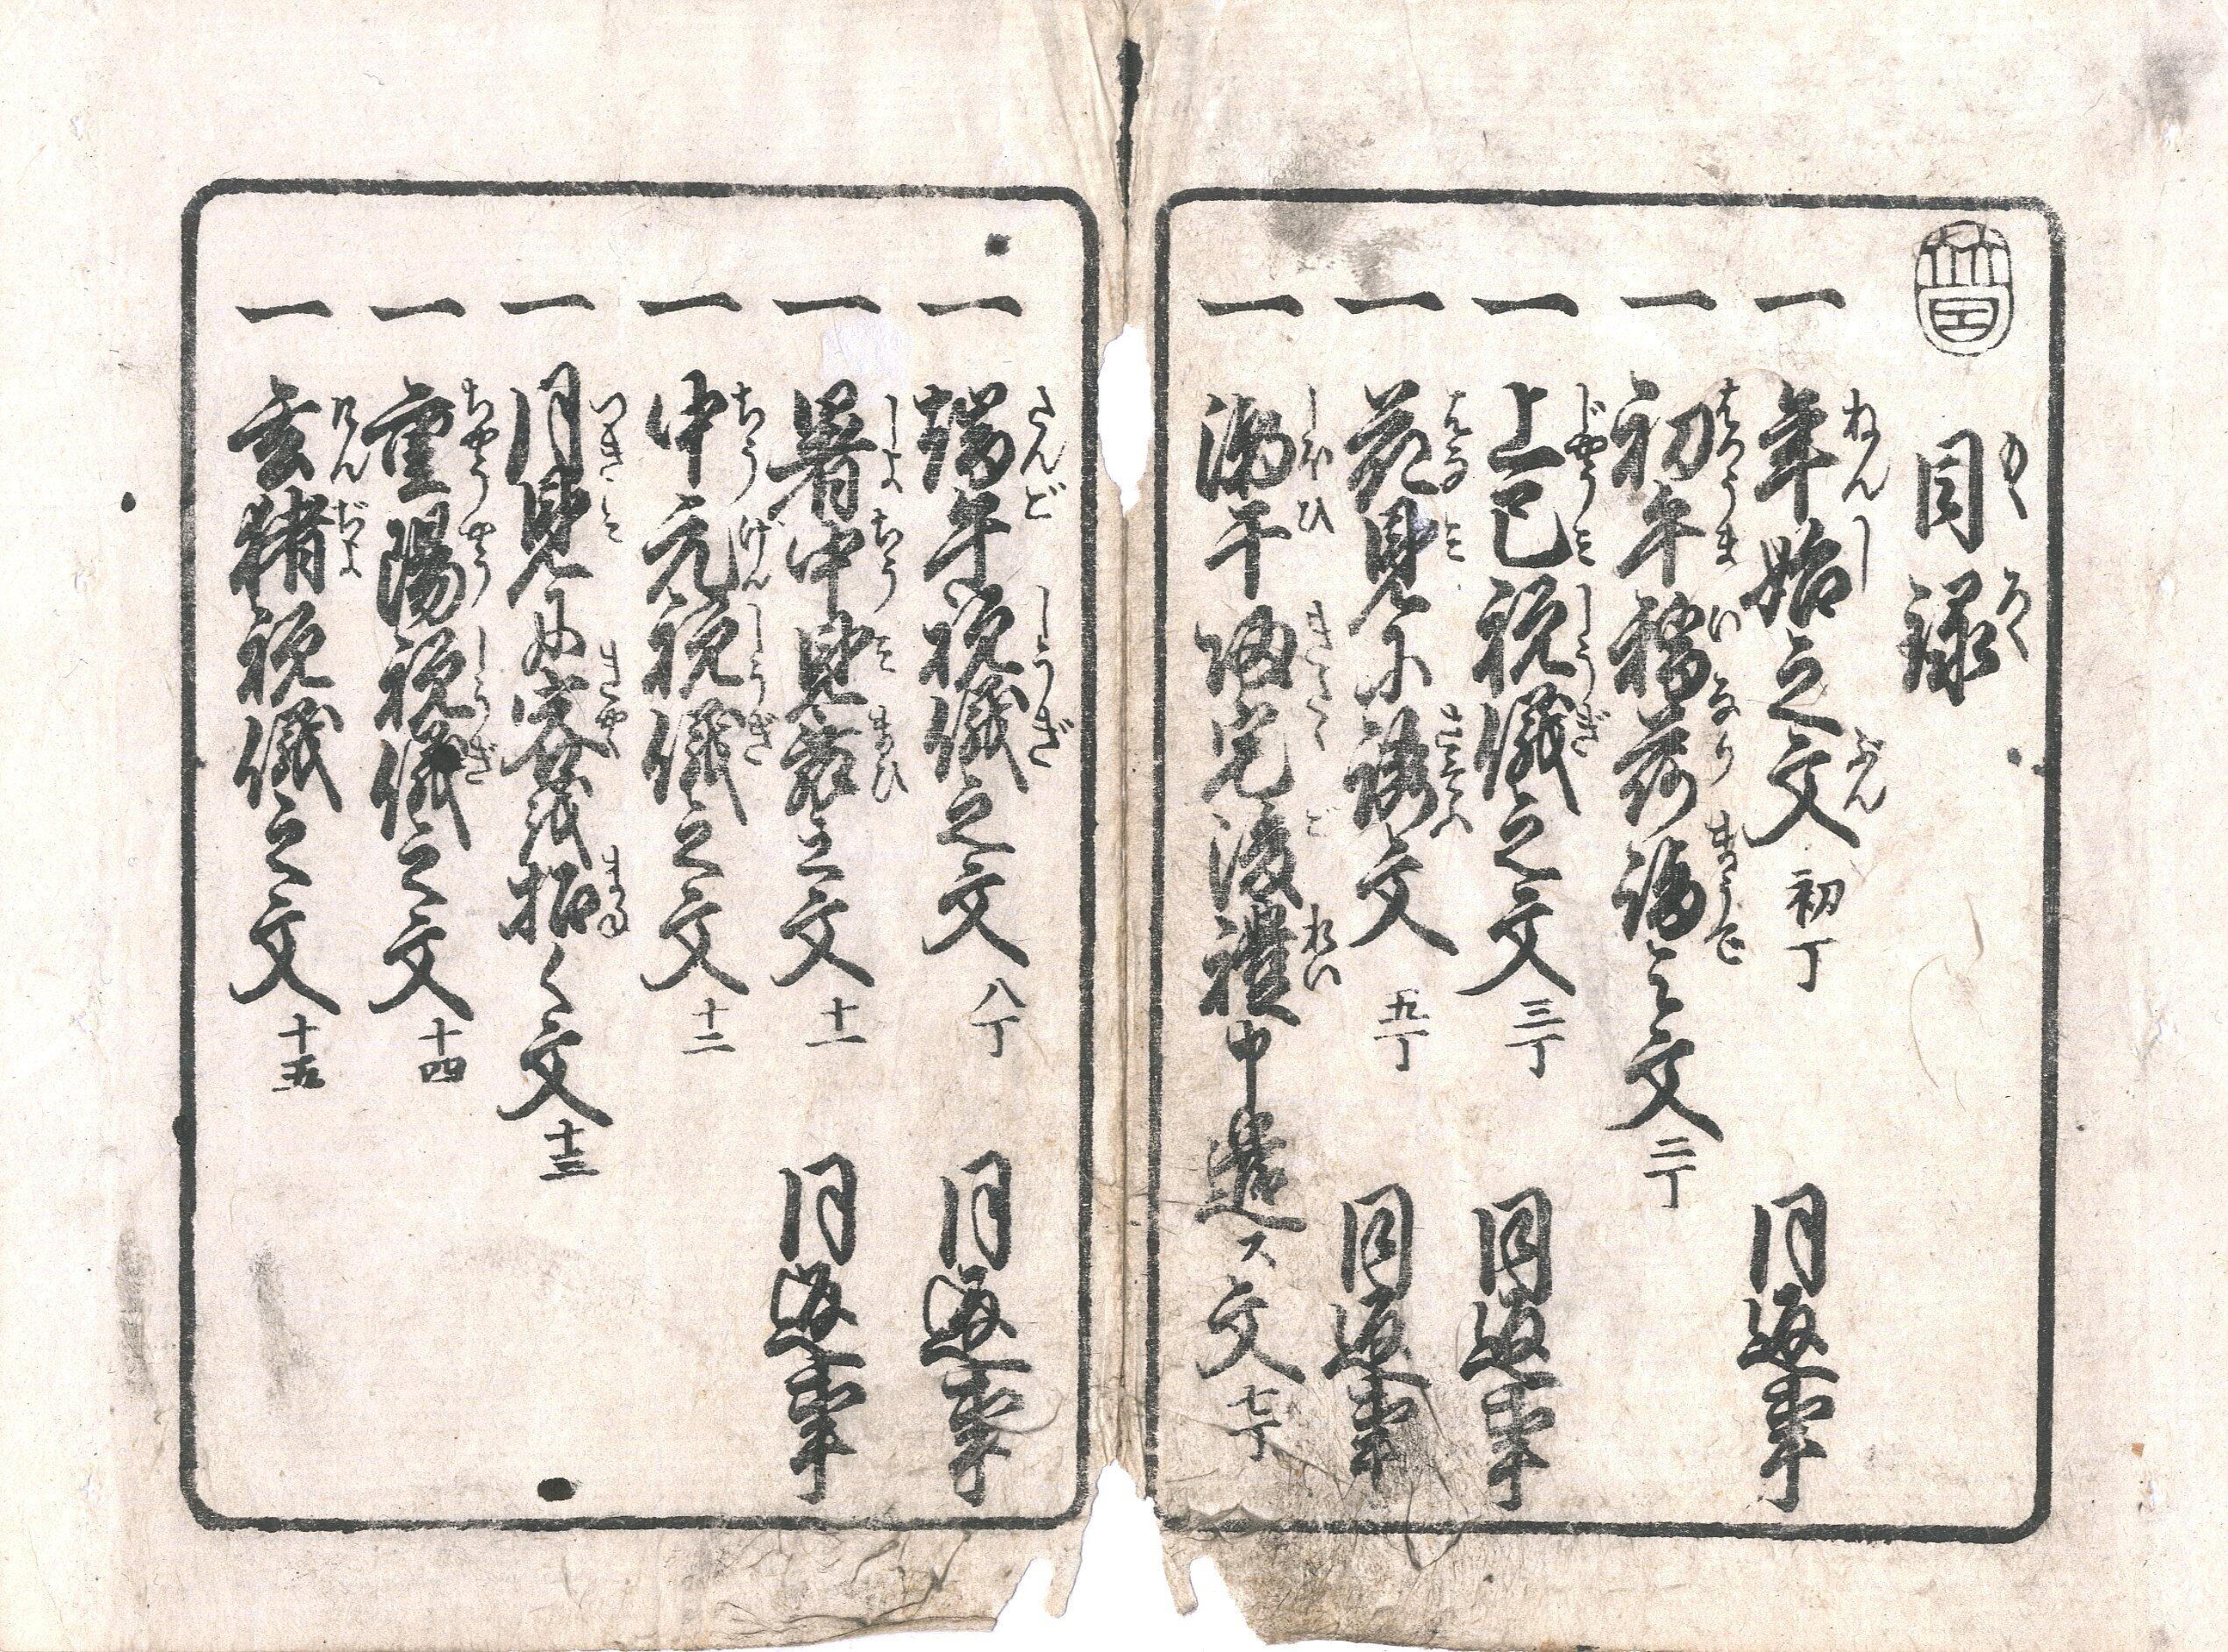 目録
一 年始之文 初丁 同返事
一 初午稲荷詣之文 二丁
一 上巳祝儀之文 三丁 同返事
一 花見に誘文 五丁 同返事
一 汐干帰宅後禮申遣ス文 七丁
一 端午祝儀之文 八丁 同返事
一 暑中見舞之文 十一 同返事
一 中元祝儀之文 十二
一 月見に客を招く文 十三
一 重陽祝儀之文 十四
一 玄猪祝儀之文 十五